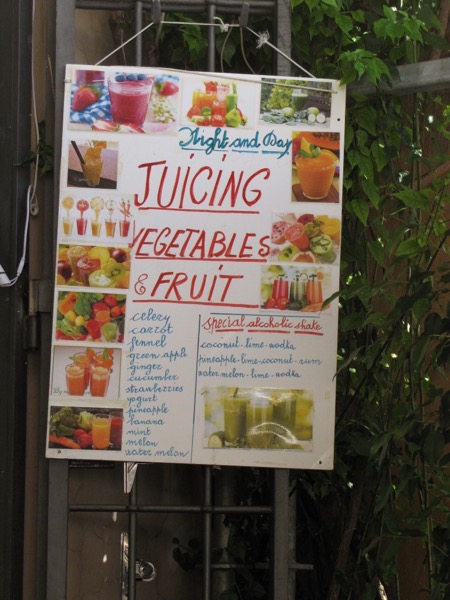 Night and Day
JUICING
VEGETABLES
& FRUIT
celery
carrot
fennel
green apple
ginger
cucumber
strawberries
yogurt
pineapple
banana
mint
melon
water melon
special alcoholic shake
coconut - lime - wodka
pineapple - lime - coconut - rum
water melon - lime - wodka